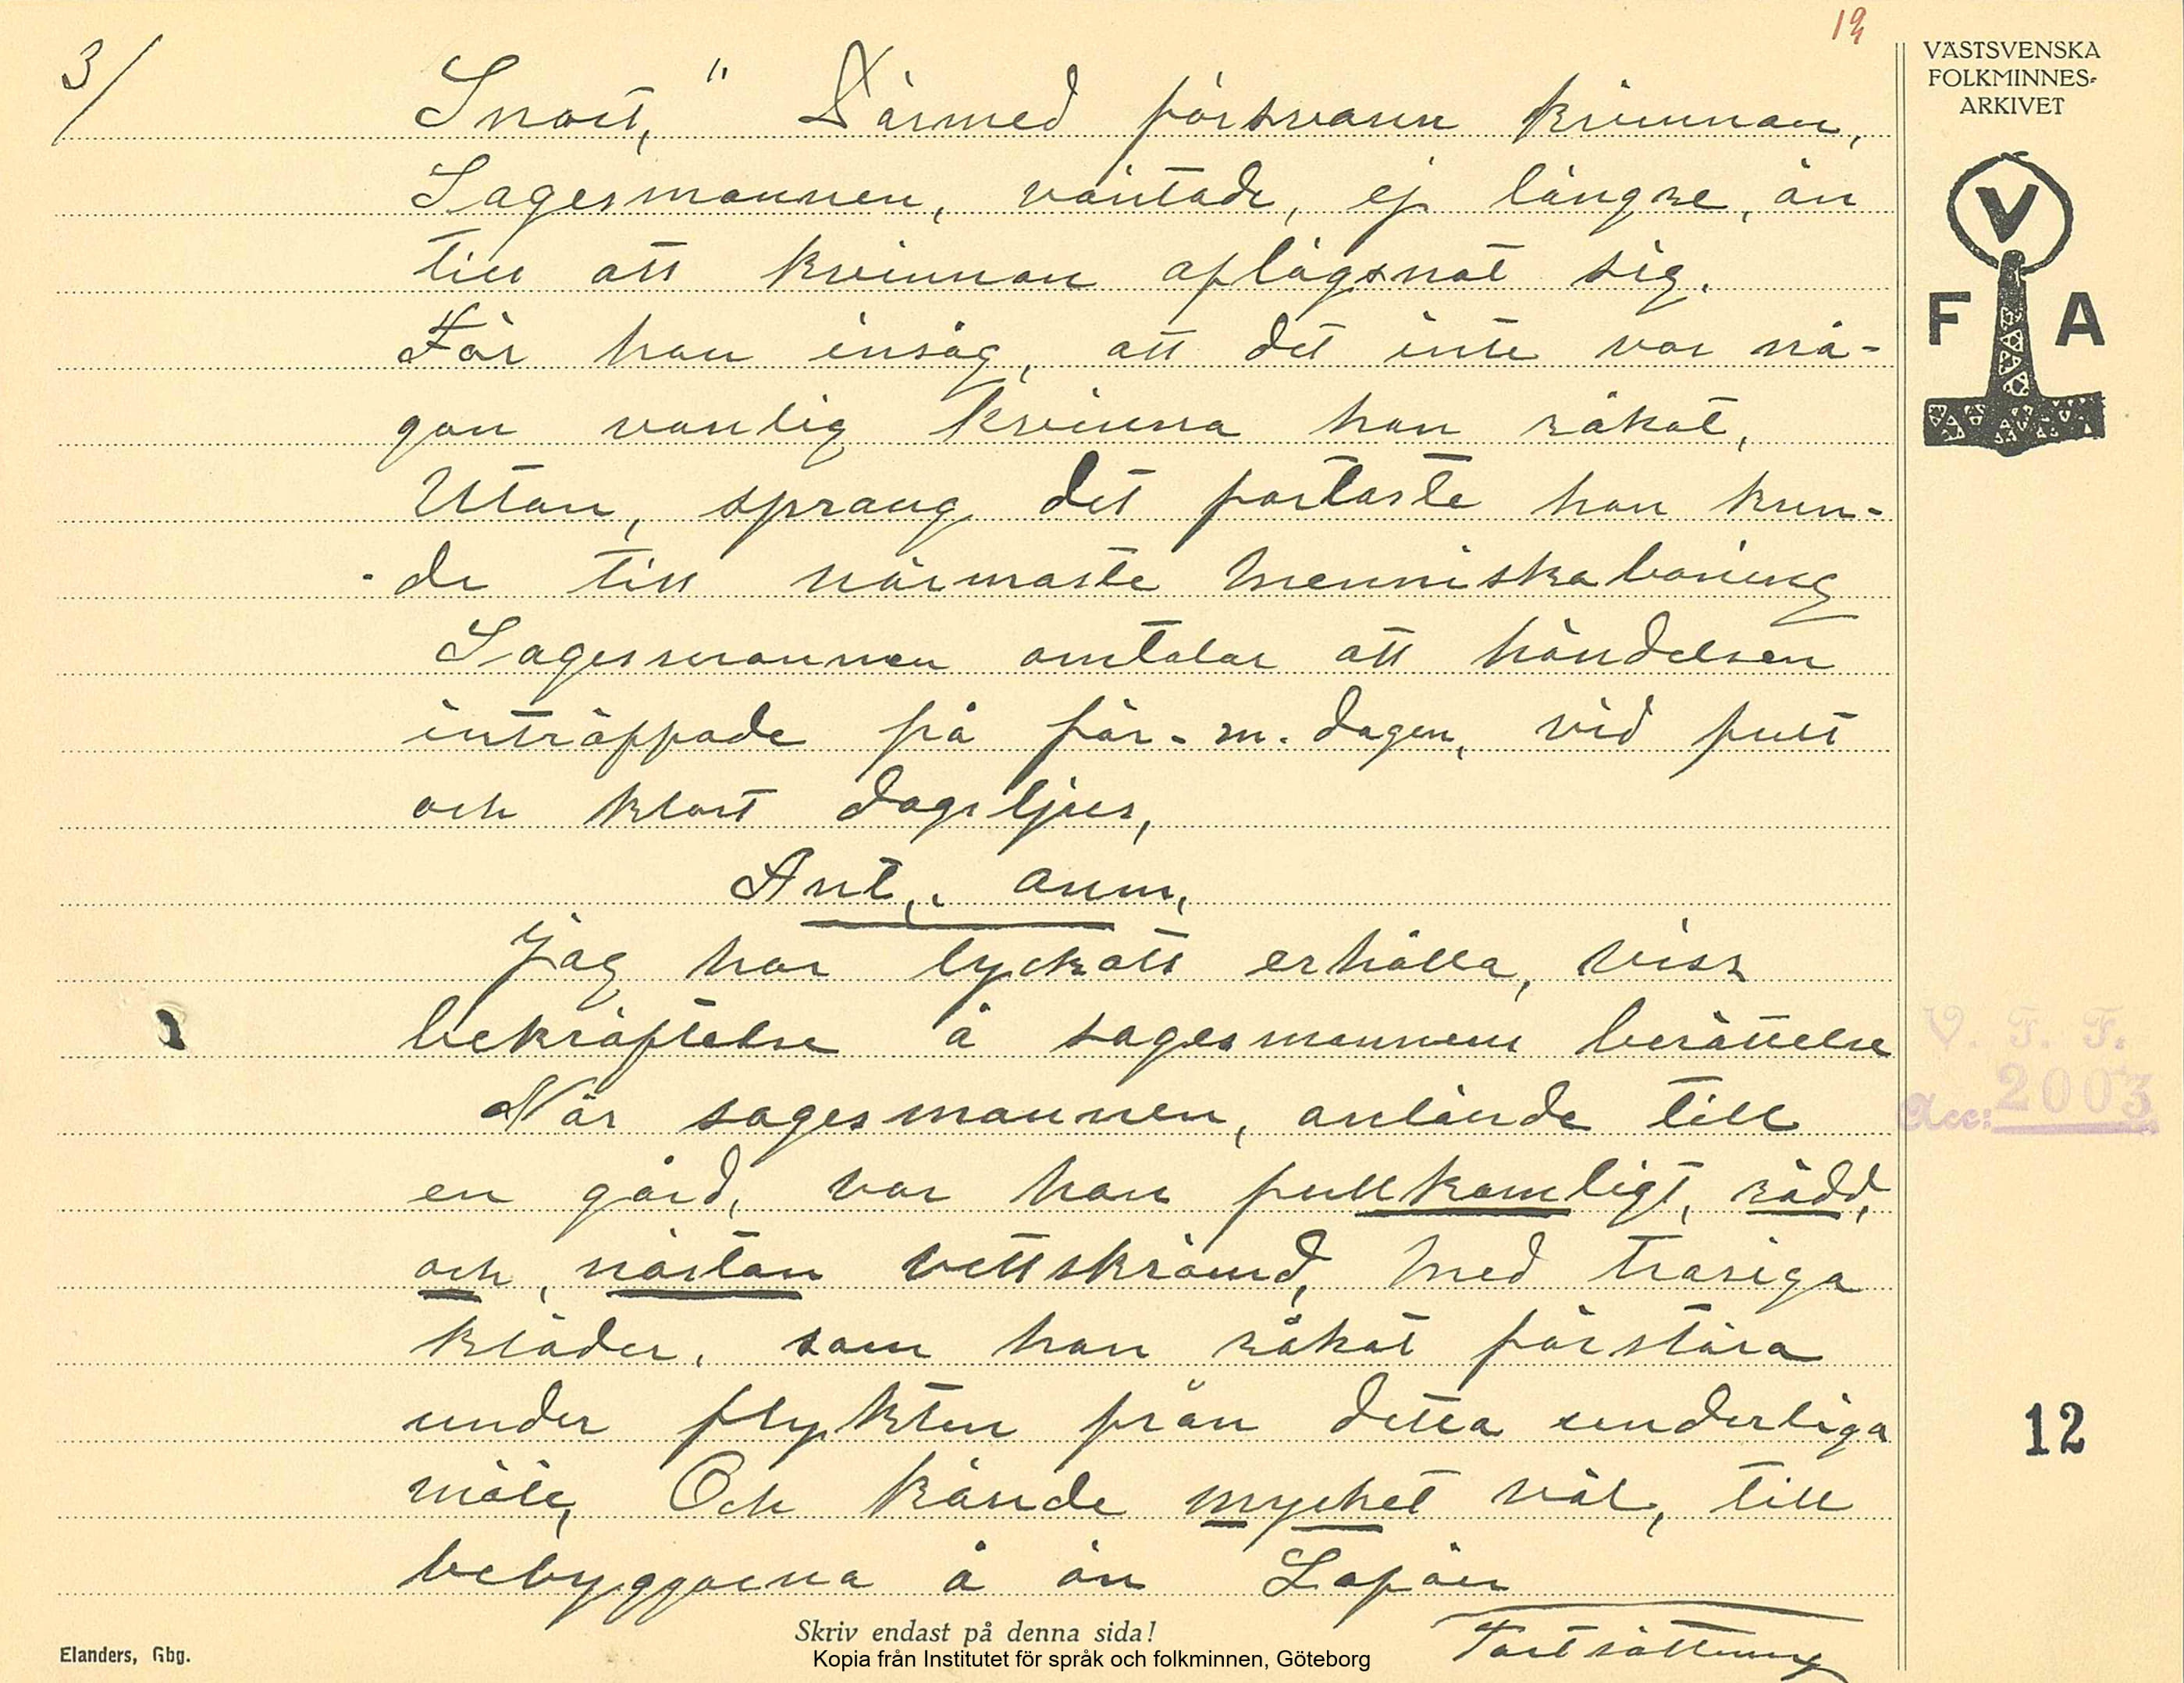 3/
12
Snart," Därmed försvann kvinnan,
Sagesmannen, väntade, ej längre, än
till att kvinnan aflägsnat sig.
För han insåg, att det inte var nå-
gon vanlig kvinna han råkat,
Utan, sprang det fortaste han kun-
-de till närmaste Menniskaboning
Sagesmannen omtalar att händelsen
inträffade på för-m. dagen, vid fullt
och klart dagsljus,
Ant,. anm,
Jag har lyckats erhålla, viss
bekräftelse å sagesmannens berättelse
När sagesmannen, anlände till
en gård, var han fullkomligt, rädd,
och, nästan vettskrämd, Med trasiga
kläder, som han råkat förstöra
under flykten från detta underliga
möte, Och kände mycket väl, till
bebyggarna å ön
Fortsättning
VÄSTSVENSKA
FOLKMINNES-
ARKIVET
V
F A
V. F. F.
Acc: 2003
12
Skriv endast på denna sida!
Elanders, Gbg.
Kopia från Institutet för språk och folkminnen, Göteborg